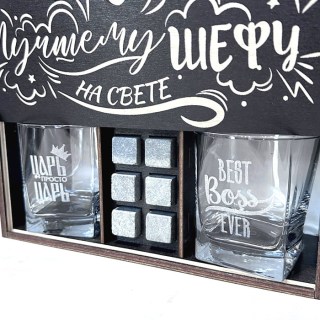 Лучшему ШЕФУ
НА СВЕТЕ
ЦАРЬ
ПРОСТО
ЦАРЬ
BEST
Boss
EVER